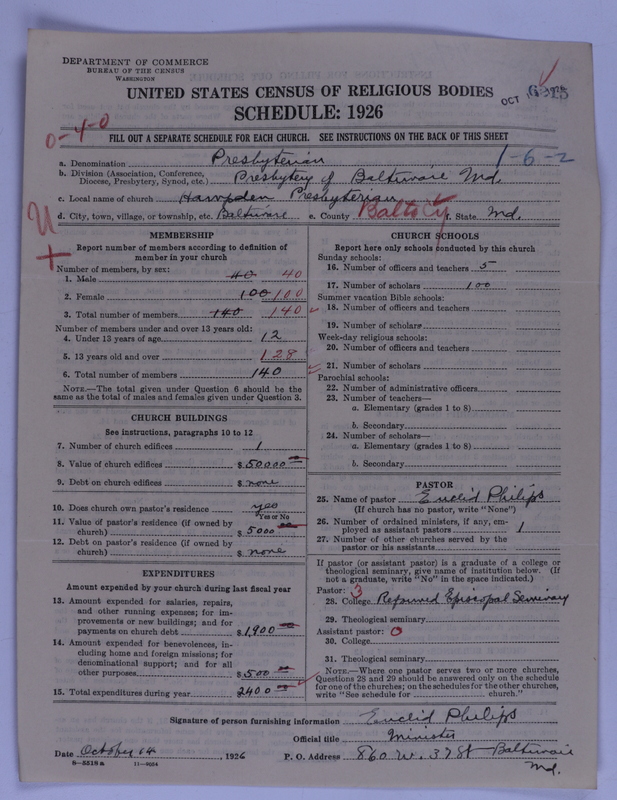 DEPARTMENT OF COMMERCE
BUREAU OF THE CENSUS
WASHINGTON
UNITED STATES CENSUS OF RELIGIOUS BODIES
OCT
SCHEDULE: 1926
0-4-0
FILL OUT A SEPARATE SCHEDULE FOR EACH CHURCH. SEE INSTRUCTIONS ON THE BACK OF THIS SHEET
a. Denomination Presbyterian
1-6-2
b. Division (Association, Conference, Diocese, Presbytery, Synod, etc.) Presbytery of Baltimore Md.
c. Local name of church Hampden Presbyterian
d. City, town, village, or township, etc. Baltimore e. County Balto City f. State Md.
MEMBERSHIP
Report number of members according to definition of
member in your church
Number of members, by sex:
1. Male 40 40
2. Female 100 100
3. Total number of members 140 140
Number of members under and over 13 years old:
4. Under 13 years of age 12
5. 13 years old and over 128
6. Total number of members 140
NOTE.—The total given under Question 6 should be the
same as the total of males and females given under Question 3.
CHURCH BUILDINGS
See instructions, paragraphs 10 to 12
7. Number of church edifices 1
8. Value of church edifices $50000
9. Debt on church edifices $ none
10. Does church own pastor's residence yes
Yes or No
11. Value of pastor's residence (if owned by
church) $ 5000
12. Debt on pastor's residence (if owned by
church) $ none
EXPENDITURES
Amount expended by your church during last fiscal year
13. Amount expended for salaries, repairs,
and other running expenses; for im-
provements or new buildings; and for
payments on church debt $1,900
14. Amount expended for benevolences, in-
cluding home and foreign missions; for
denominational support; and for all
other purposes $500
15. Total expenditures during year 2400
CHURCH SCHOOLS
Report here only schools conducted by this church
Sunday schools:
16. Number of officers and teachers 5
17. Number of scholars 100
Summer vacation Bible schools:
18. Number of officers and teachers
19. Number of scholars
Week-day religious schools:
20. Number of officers and teachers
21. Number of scholars
Parochial schools:
22. Number of administrative officers
23. Number of teachers—
a. Elementary (grades 1 to 8)
b. Secondary
24. Number of scholars—
a. Elementary (grades 1 to 8)
b. Secondary
PASTOR
25. Name of pastor Euclid Philips
(If church has no pastor, write "None")
26. Number of ordained ministers, if any, em-
ployed as assistant pastors 1
27. Number of other churches served by the
pastor or his assistants
If pastor (or assistant pastor) is a graduate of a college or
theological seminary, give name of institution below. (If
not a graduate, write "No" in the space indicated.)
Pastor: 3
28. College Reformed Episcopal Seminary
29. Theological seminary
Assistant pastor: 0
30. College
31. Theological seminary
NOTE.—Where one pastor serves two or more churches,
Questions 28 and 29 should be answered only on the schedule
for one of the churches; on the schedules for the other churches,
write "See schedule for church."
Signature of person furnishing information Euclid Philips
Official title Minister
Date October 14, 1926 P. O. Address 860 W. 37 St Baltimore
Md.
8-5518 a 11-9054